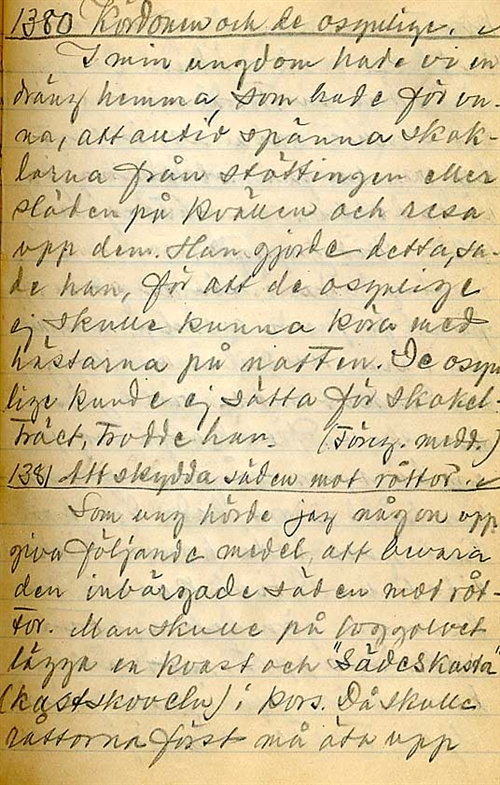 1380 Kördonen och de osynlige.
I min ungdom hade vi en
dräng hemma, som hade för va-
na, att alltid spänna skak-
larna från stöttingen eller
släden på kvällen och resa
upp dem. Han gjorde detta, sa-
de han, för att de osynlige
ej skulle kunna köra med
hästarna på natten. De osyn
lige kunde ej sätta för skakel-
träet, trodde han. (Förez. medd.)
1381 Att skydda säden mot råttor.
Som ung hörde jag någon upp
giva följande medel, att bevara
den inbärgade säden mot råt-
tor. Man skulle på loggolvet
lägga en kvast och "sädeskasta"
(kastskoveln) i kors. Då skulle
råttorna först må äta upp